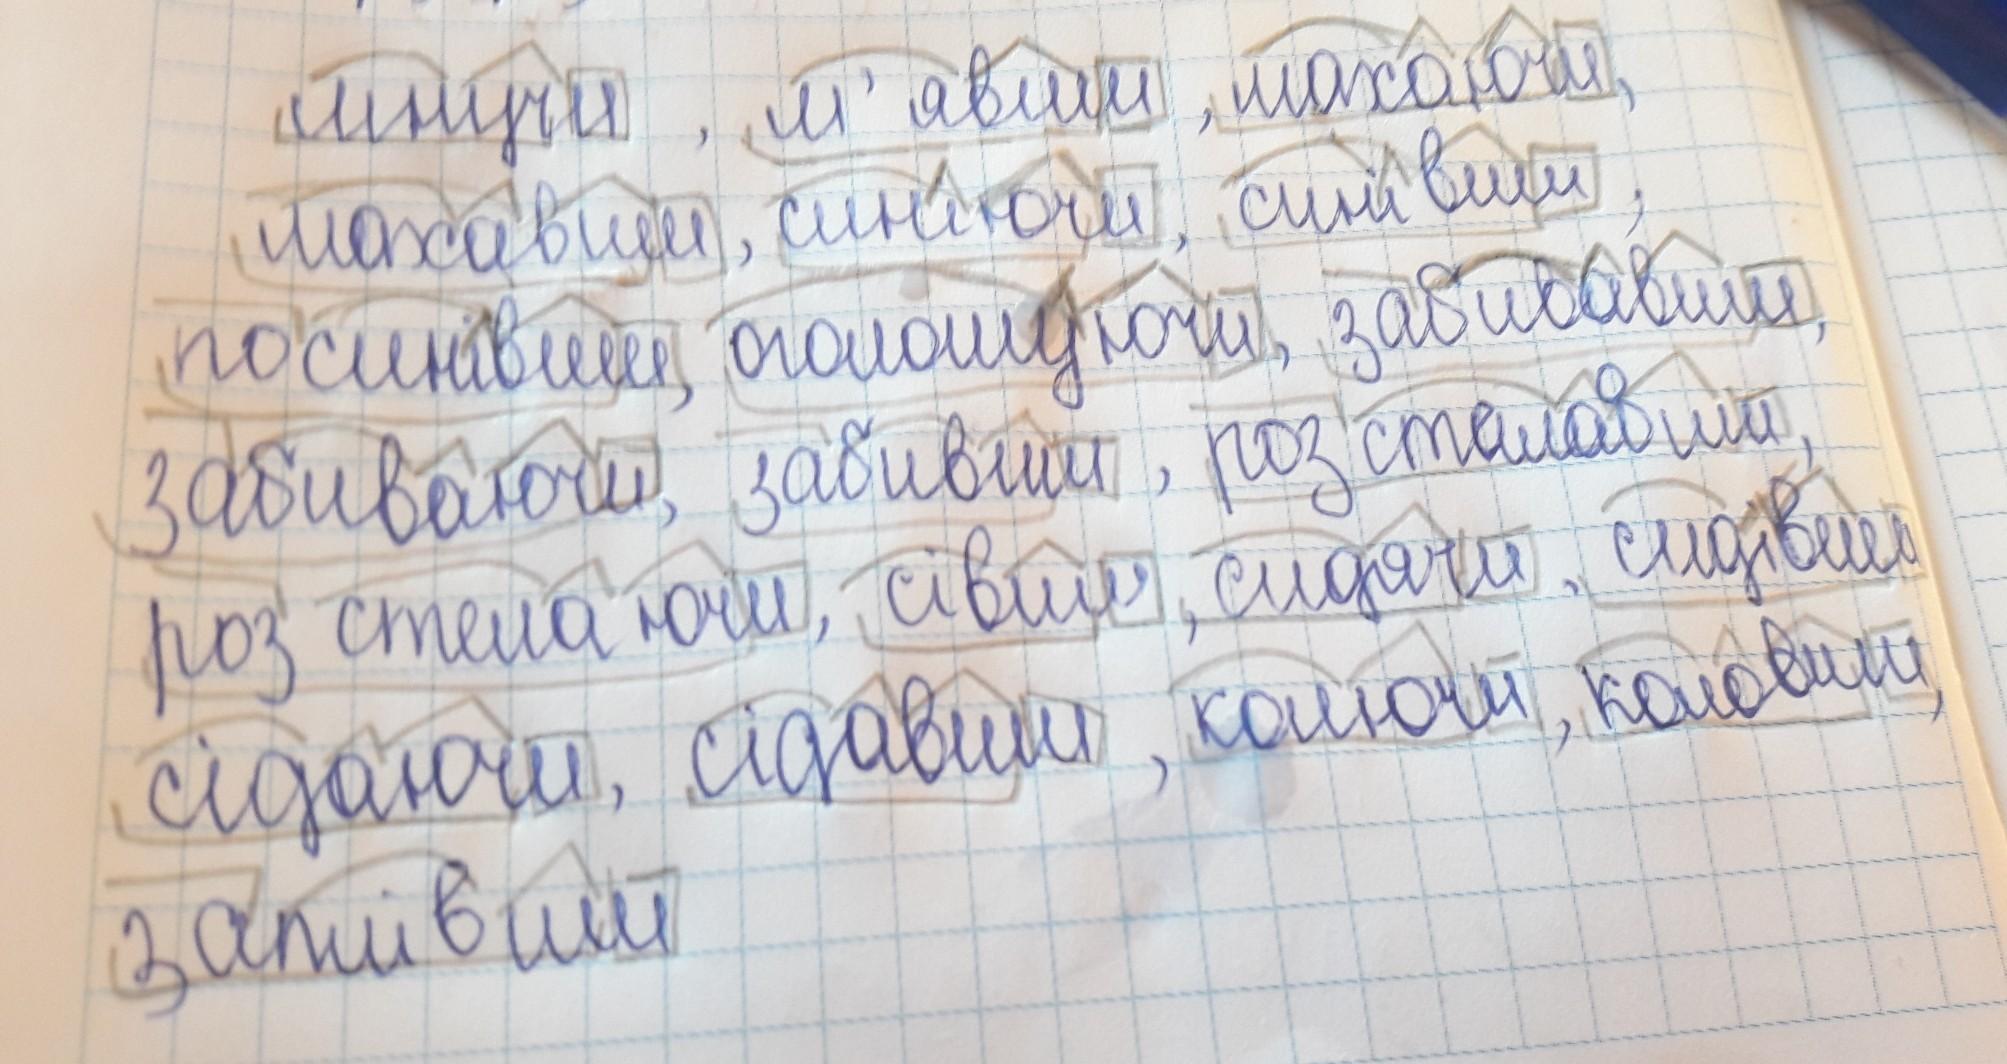 мнучи, м'явши, махаючи,
махавши, синіючи, синівши,
посинівши, оголошуючи, забивавши,
забиваючи, забивши, розстелавши,
розстелаючи, сівши, сидячи, сидівши
сідаючи, сідавши, колючи, коловши,
заплівши